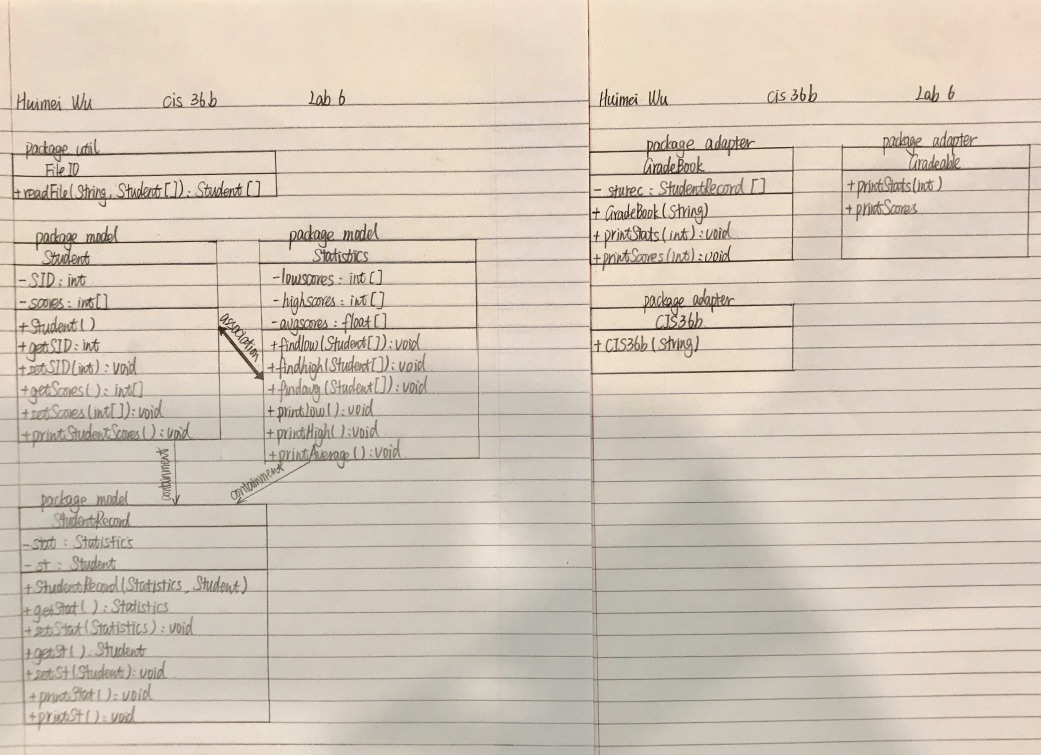 Huimei Wu cis 36b Lab 6
package util
FileIO
+readFile(String, Student[]): Student[]
package model
Student
-SID: int
-scores: int[]
+Student()
+getSID: int
+setSID(int): void
+getScores(): int[]
+setScores(int[]): void
+printStudentScores(): void
association
package model
Statistics
-lowscores: int[]
-highscores: int[]
-avgscores: float[]
+findlow(Student[]): void
+findhigh(Student[]): void
+findavg(Student[]): void
+printLow(): void
+printHigh(): void
+printAverage(): void
containment
containment
package model
StudentRecord
-stat: Statistics
-st: Student
+StudentRecord(Statistics, Student)
+getStat(): Statistics
+setStat(Statistics): void
+getSt(): Student
+setSt(Student): void
+printStat(): void
+printSt(): void
Huimei Wu cis 36b Lab 6
package adapter
GradeBook
- sturec: StudentRecord[]
+ GradeBook(String)
+printStats(int): void
+printScores(int): void
package adapter
Gradeable
+printStats(int)
+printScores
package adapter
CIS36b
+CIS36b(String)